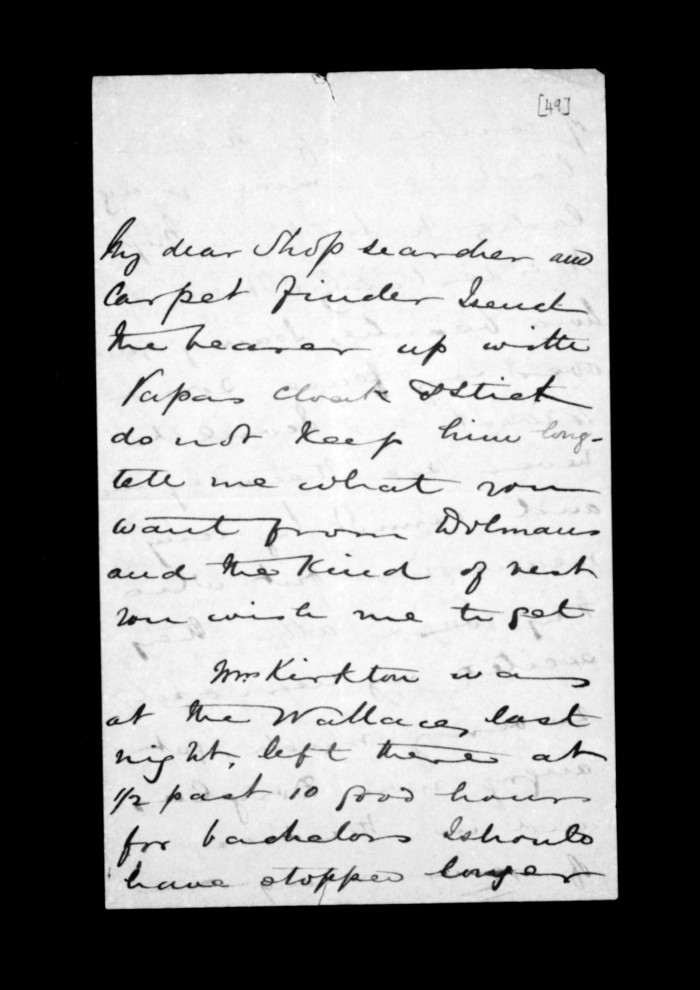 [49]
My dear Shop searcher and
Carpet finder I send
the bearer up with
Papas cloak & Stick
do not keep him long -
tell me what you
want from Dolmans
and the kind of vest
you wish me to get
Mrs Kirkton was
at the Wallaces last
night, left there at
1/2 past 10 good hours
for bachelors I should
have stopped longer